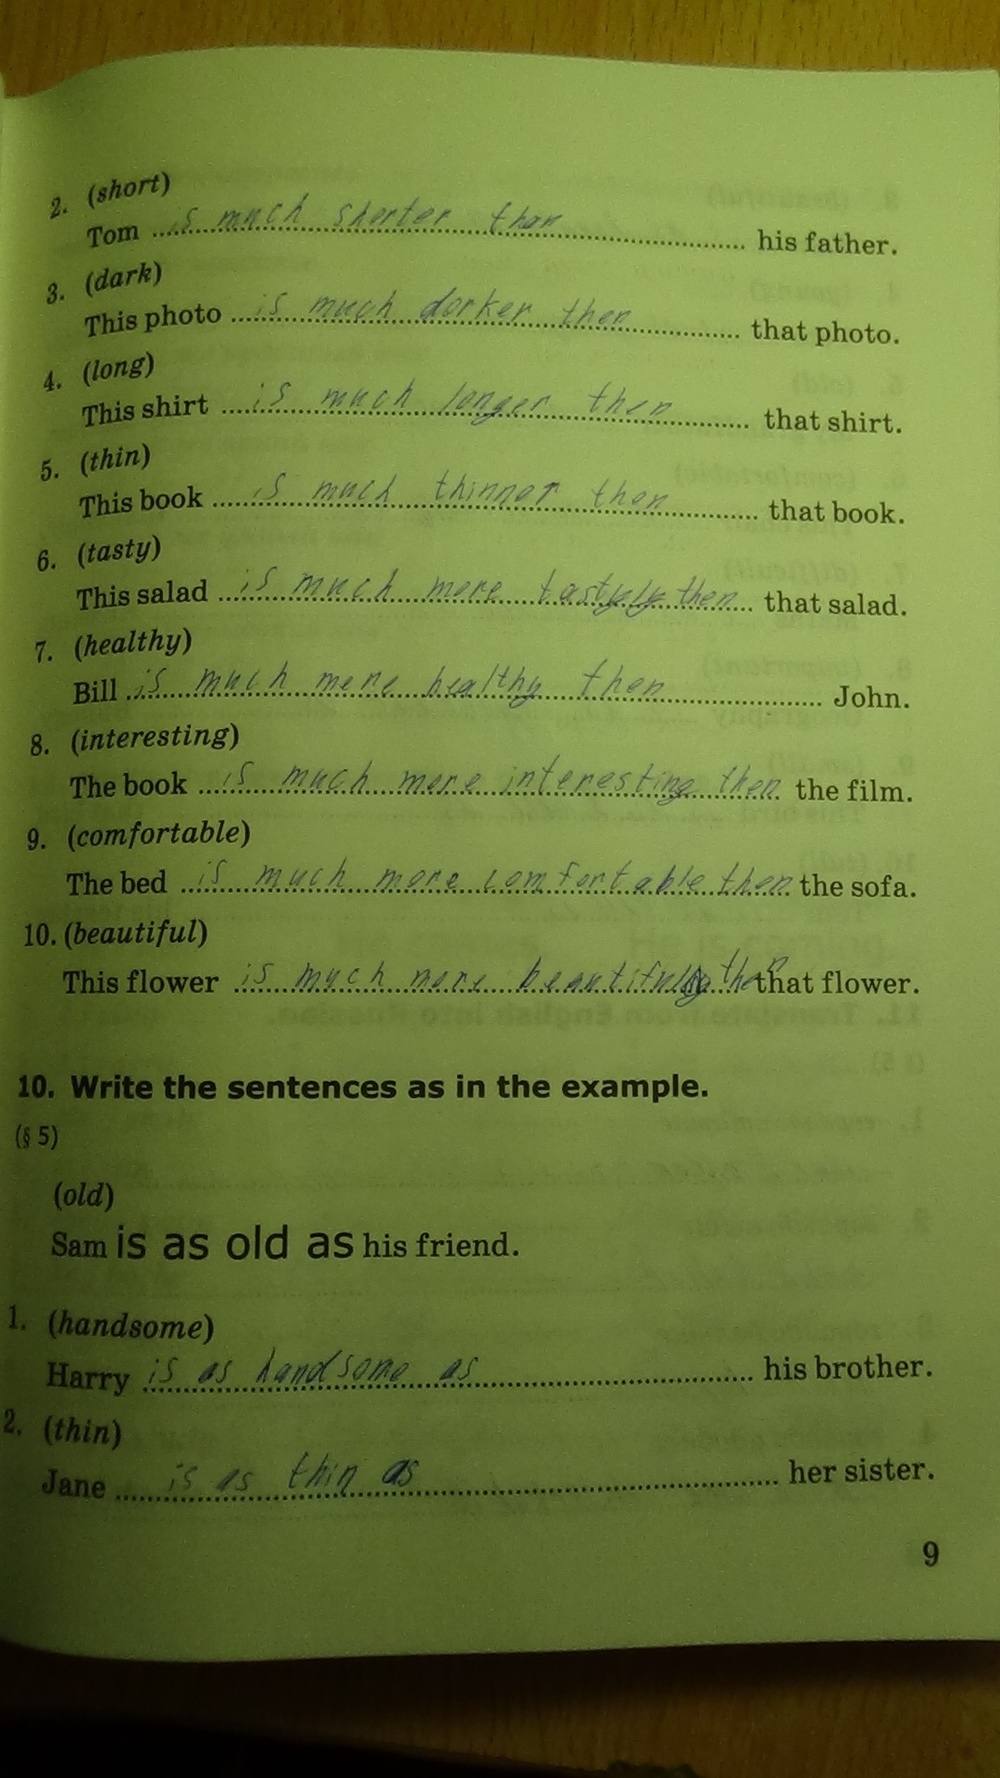 2. (short)
Tom is much shorter than his father.
3. (dark)
This photo is much darker then that photo.
4. (long)
This shirt is much longer then that shirt.
5. (thin)
This book is much thinner then that book.
6. (tasty)
This salad is much more tasty then that salad.
7. (healthy)
Bill is much more healthy then John.
8. (interesting)
The book is much more interesting then the film.
9. (comfortable)
The bed is much more comfortable then the sofa.
10. (beautiful)
This flower is much more beautiful then that flower.
10. Write the sentences as in the example.
(§ 5)
(old)
Sam is as old as his friend.
1. (handsome)
Harry is as handsome as his brother.
2. (thin)
Jane is as thin as her sister.
9